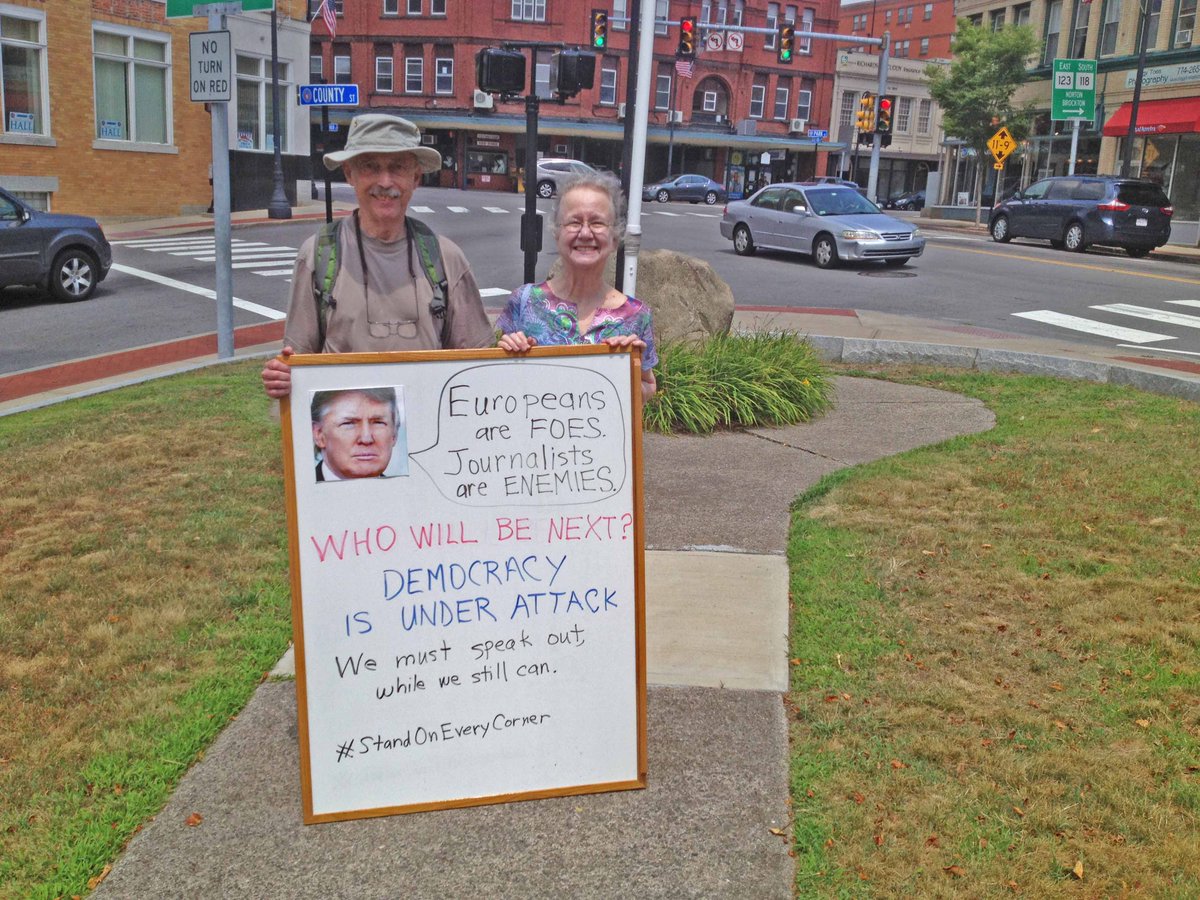 NO
TURN
ON RED
COUNTY ST
HALL
HALL
East
South
123
118
NORTON
BROCKTON
11-9
774-26
Europeans
are FOES.
Journalists
are ENEMIES.
WHO WILL BE NEXT?
DEMOCRACY
IS UNDER ATTACK
We must speak out,
while we still can.
#StandOnEveryCorner